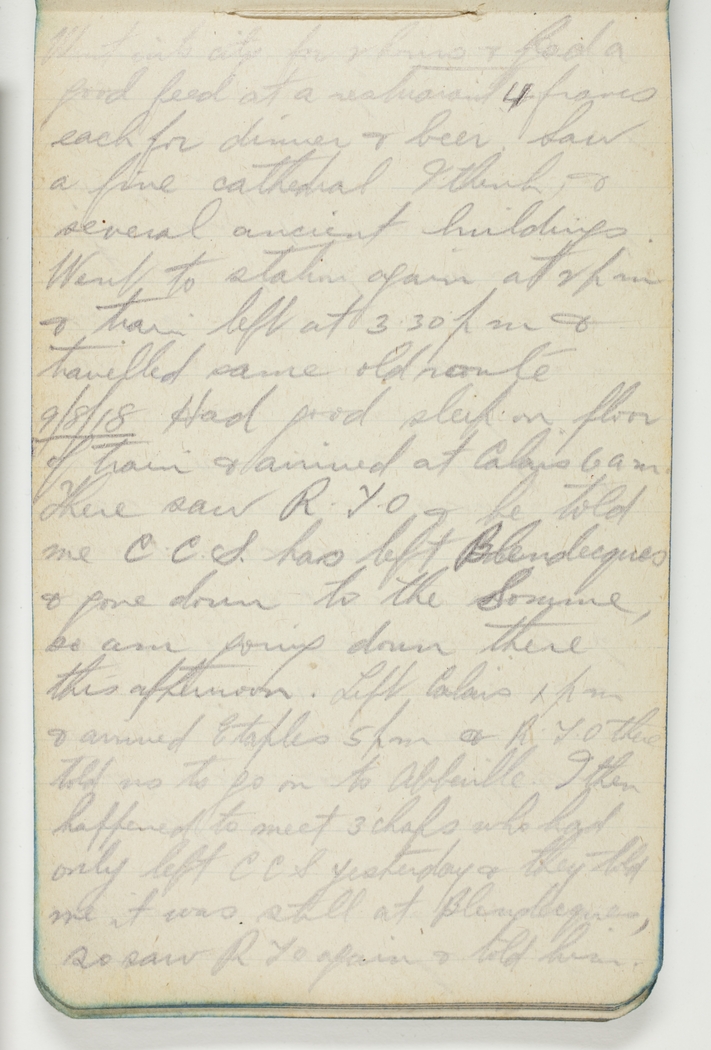 Went into city for 2 hours & had a
good feed at a restaurant 4 francs
each for dinner & beer. Saw
a fine cathedral I think, &
several ancient buildings.
Went to station again at 2 pm
& train left at 3.30 pm &
travelled same old route
9/8/18 Had good sleep on floor
of train & arrived at Calais 6 am.
There saw R.T.O & he told
me C.C.S. has left Blendecques
& gone down to the Somme,
so am going down there
this afternoon. Left Calais 1 pm
& arrived Etaples 5 pm & R.T.O there
told us to go on to Abbeville. I then
happened to meet 3 chaps who had
only left C C S yesterday & they told
me it was still at Blendecques,
so saw R T O again & told him.